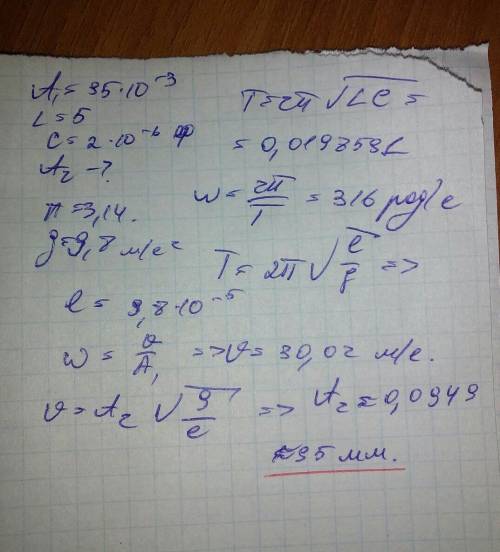 A₁ = 95·10⁻³
L = 5
C = 2·10⁻⁶ ф
A₂ - ?
π = 3,14.
g = 9,8 м/с²
T = 2π √LC =
= 0,0198591
ω = 2π/T = 316 рад/с
T = 2π √(l/g) =>
l = 9,8·10⁻⁵
ω = υ/A₁ => υ = 30,02 м/с.
υ = A₂ √(g/l) => A₂ ≈ 0,0949
≈ 95 мм.